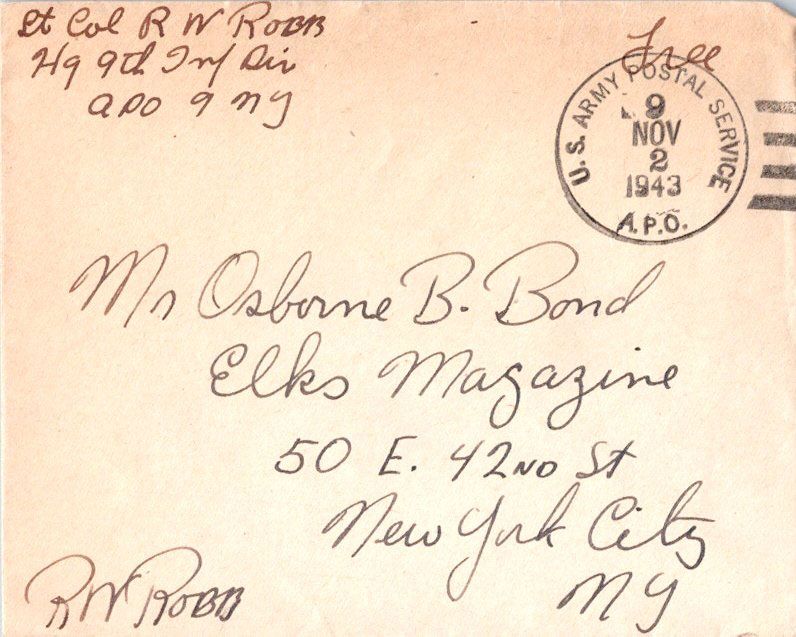 Lt Col R W ROBB
Hq 9th Inf Div
APO 9 NY
Free
U.S. ARMY POSTAL SERVICE
9
NOV
2
1943
A.P.O.
Mr Osborne B. Bond
Elks Magazine
50 E. 42ND St
New York City
NY
RW ROBB